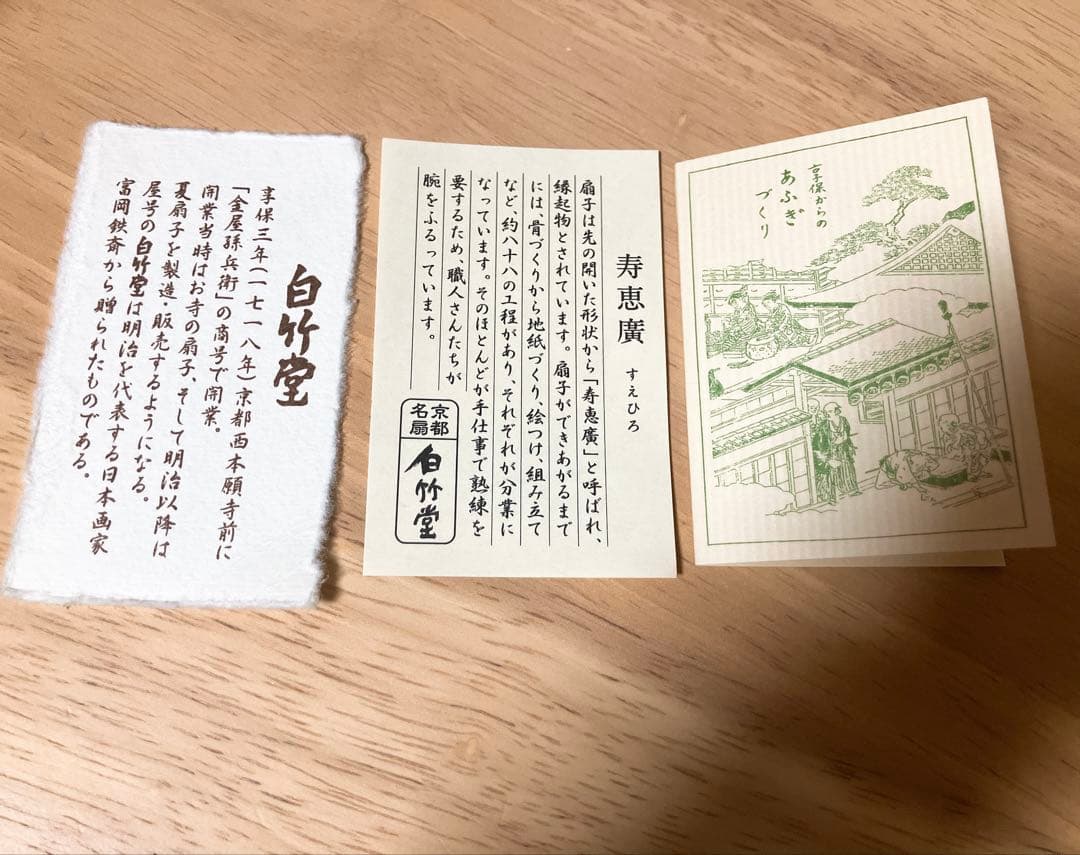 白竹堂
享保三年(一七一八年)京都西本願寺前に
「金屋孫兵衛」の商号で開業。
開業当時はお寺の扇子、そして明治以降は
夏扇子を製造・販売するようになる。
屋号の白竹堂は明治を代表する日本画家
富岡鉄斎から贈られたものである。
寿恵廣 すえひろ
扇子は先の開いた形状から「寿恵廣」と呼ばれ、
縁起物とされています。扇子ができあがるまで
には、骨づくりから地紙づくり、絵つけ、組み立て
など約八十八の工程があり、それぞれが分業に
なっています。そのほとんどが手仕事で熟練を
要するため、職人さんたちが
腕をふるっています。
京都
名扇
白竹堂
享保からの
あふぎ
づくり